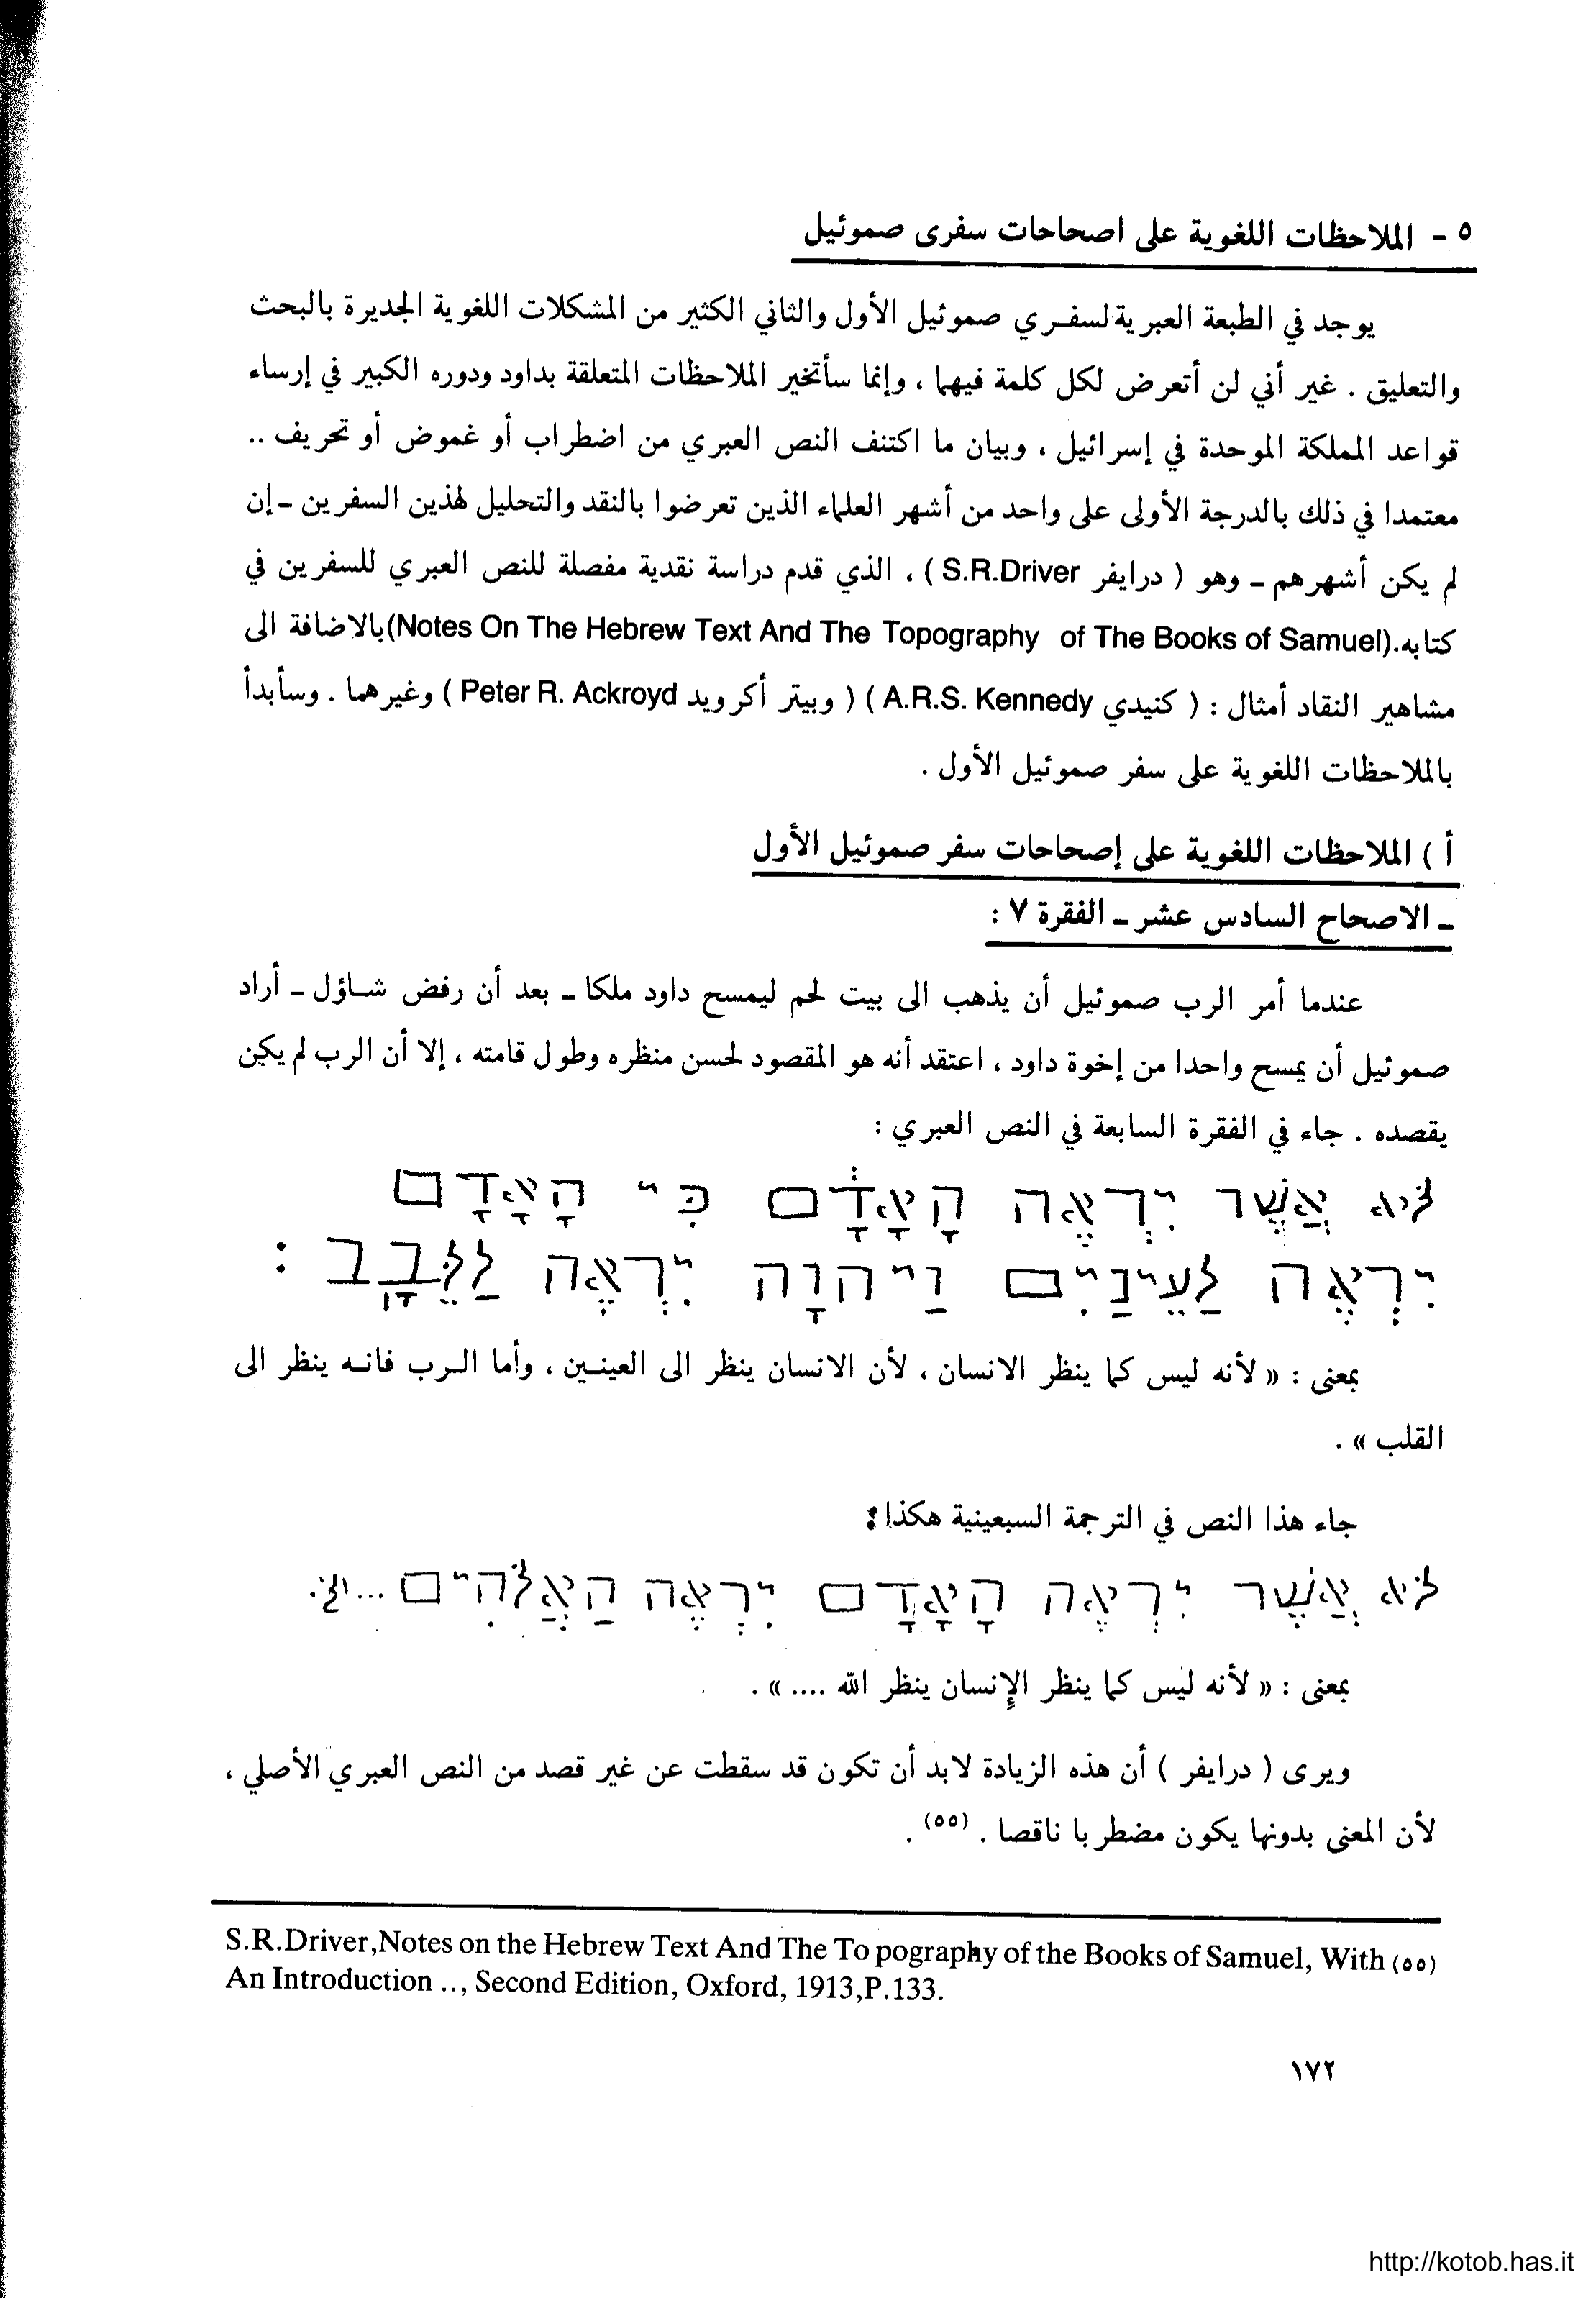 ٥ - الملاحظات اللغوية على اصحاحات سفرى صموئيل
يوجد في الطبعة العبرية لسفـري صموئيل الأول والثاني الكثير من المشكلات اللغوية الجديرة بالبحث
والتعليق . غير أني لن أتعرض لكل كلمة فيهما ، وإنما سأتخير الملاحظات المتعلقة بداود ودوره الكبير في إرساء
قواعد المملكة الموحدة في إسرائيل ، وبيان ما اكتنف النص العبري من اضطراب أو غموض أو تحريف ..
معتمدا في ذلك بالدرجة الأولى على واحد من أشهر العلماء الذين تعرضوا بالنقد والتحليل لهذين السفرين - إن
لم يكن أشهرهم - وهو ( درايفر S.R.Driver ) ، الذي قدم دراسة نقدية مفصلة للنص العبري للسفرين في
كتابه.(Notes On The Hebrew Text And The Topography of The Books of Samuel)بالاضافة الى
مشاهير النقاد أمثال : ( كنيدي A.R.S. Kennedy ) ( وبيتر أكرويد Peter R. Ackroyd ) وغيرهما . وسأبدأ
بالملاحظات اللغوية على سفر صموئيل الأول .
أ ) الملاحظات اللغوية على إصحاحات سفر صموئيل الأول
- الاصحاح السادس عشر - الفقرة ٧ :
عندما أمر الرب صموئيل أن يذهب الى بيت لحم ليمسح داود ملكا - بعد أن رفض شـاؤل - أراد
صموئيل أن يمسح واحدا من إخوة داود ، اعتقد أنه هو المقصود لحسن منظره وطول قامته ، إلا أن الرب لم يكن
يقصده . جاء في الفقرة السابعة في النص العبري :
לֹא אֲשֶׁר יִרְאֶה הָאָדָם כִּי הָאָדָם
יִרְאֶה לַעֵינַיִם וַיהוָה יִרְאֶה לַלֵּבָב :
بمعنى : « لأنه ليس كما ينظر الانسان ، لأن الانسان ينظر الى العينـين ، وأما الـرب فانـه ينظر الى
القلب » .
جاء هذا النص في الترجمة السبعينية هكذا :
לֹא אֲשֶׁר יִרְאֶה הָאָדָם יִרְאֶה הַאֱלֹהִים ... الخ.
بمعنى : « لأنه ليس كما ينظر الإنسان ينظر الله .... » .
ويرى ( درايفر ) أن هذه الزيادة لابد أن تكون قد سقطت عن غير قصد من النص العبري الأصلي ،
لأن المعنى بدونها يكون مضطربا ناقصا . (٥٥) .
S.R.Driver,Notes on the Hebrew Text And The To pography of the Books of Samuel, With (٥٥)
An Introduction .., Second Edition, Oxford, 1913,P.133.
١٧٢
http://kotob.has.it